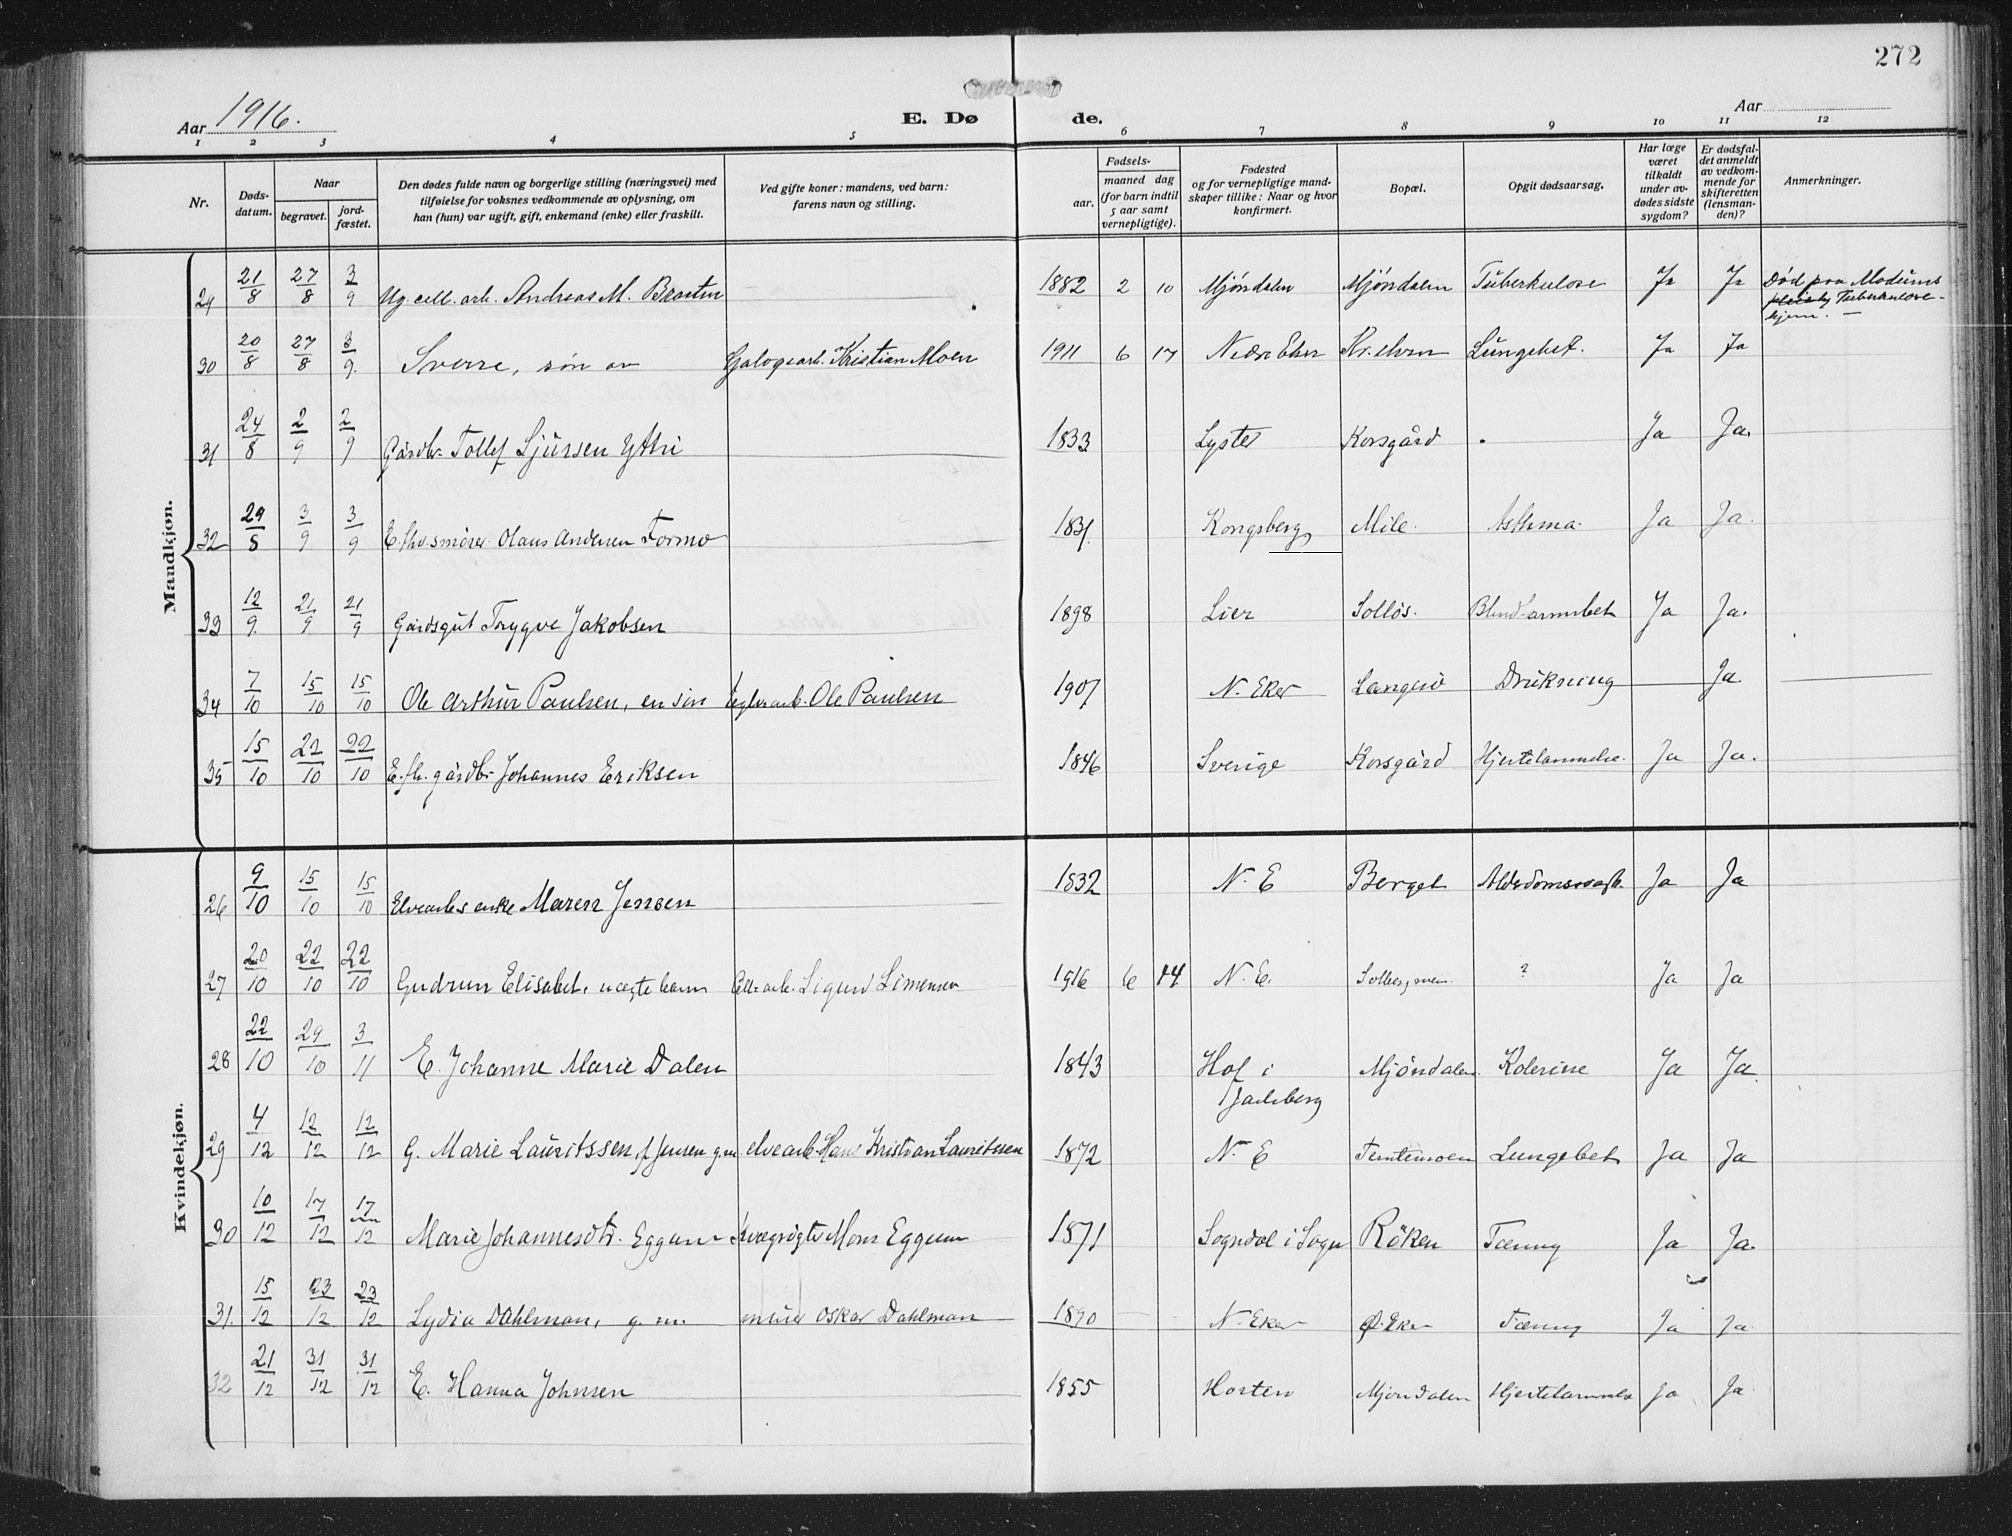 272
Aar 1916. E. Dø de. Aar
1 2 3 4 5 6 7 8 9 10 11 12
Nr. Døds-datum. Naar begravet. jord-fæstet. Den dødes fulde navn og borgerlige stilling (næringsvei) med tilføielse for voksnes vedkommende av oplysning, om han (hun) var ugift, gift, enkemand (enke) eller fraskilt. Ved gifte koner: mandens, ved barn: farens navn og stilling. aar. Fødsels- maaned dag (for barn indtil 5 aar samt vernepligtige). Fødested og for vernepligtige mand-skaper tillike: Naar og hvor konfirmert. Bopæl. Opgit dødsaarsag. Har læge været tilkaldt under av-dødes sidste sygdom? Er dødsfal-det anmeldt av vedkom-mende for skifteretten (lensman-den)? Anmerkninger.
Mandkjøn.
29 21/8 27/8 3/9 Ug. cell. arb. Andreas M. Braaten 1882 2 10 Mjöndalen Mjöndalen Tuberkulose Ja Ja Död paa Modums Tuberkulose-hjem.
30 20/8 27/8 3/9. Sverre, sön av Galogearb. Kristian Moen 1911 6 17 Nedre Eker Kr. elven Lungebet. Ja Ja
31 24/8 2/9 2/9 Gårdbr. Tollef Sjursen Yttri 1833 Lyster Korsgård Ja Ja.
32 29/8 3/9 3/9 E. fhv. smører Olaus Andersen Formo 1831. Kongsberg Mile. Asthma. Ja Ja.
33 12/9. 21/9 21/9 Gårdsgut Trygve Jakobsen 1898 Lier Sollös. Blindtarmbet Ja Ja.
34 7/10 15/10 15/10 Ole Arthur Paulsen, en sön Teglverarb. Ole Paulsen 1907 N. Eker Langesö Drukning Ja
35 15/10 22/10 22/10 E. fh. gårdbr. Johannes Eriksen 1846 Sverige Korsgård Hjertelammelse. Ja Ja.
Kvindekjøn.
26 9/10 15/10 15/10 Elvearb.s enke Maren Jensen 1832 N. E Berget Alderdomssvagh. Ja Ja
27 20/10 22/10 22/10 Gudrun Elisabet, uægte barn Cell. arb. Sigurd Simensen 1916 6 14 N. E. Solbergmoen. ? Ja Ja
28 22/10 29/10 3/11 E. Johanne Marie Dalen 1843 Hof i Jarlsberg Mjöndalen. Kolerine Ja Ja.
29 4/12 12/12 12/12 G. Marie Lauritssen, f. Jensen g.m. elvearb. Hans Kristian Lauritssen 1872 N. E Temtemoen Lungebet Ja Ja
30 10/12 17/12 17/12 Marie Johannesdtr. Eggum Kvægrøgter Mons Eggum 1871 Sogndal i Sogn Röken Tæring Ja Ja.
31. 15/12 23/12 23/12 Lydia Dahlman, g. m. murer Oskar Dahlman 1890 N. Eker Ø. Eker Tæring Ja Ja.
32 21/12 31/12 31/12 E. Hanna Johnsen 1855 Horten Mjöndalen Hjertelammelse Ja Ja